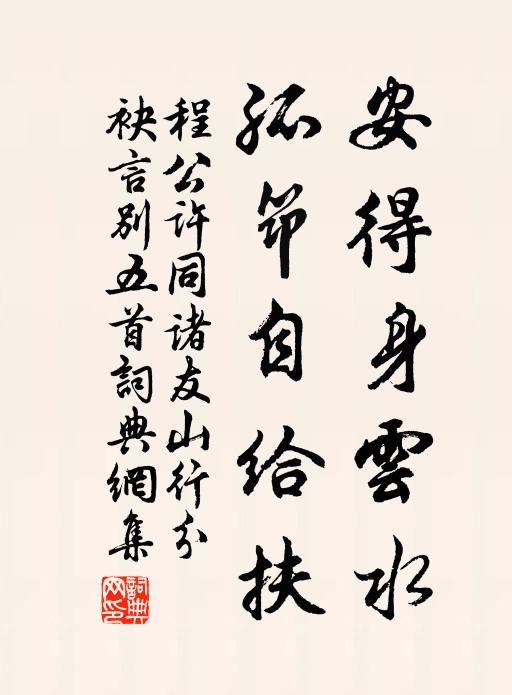 安得身雲水
孤筇自給扶
程公許同諸友山行分
袂言別五首詞典網集